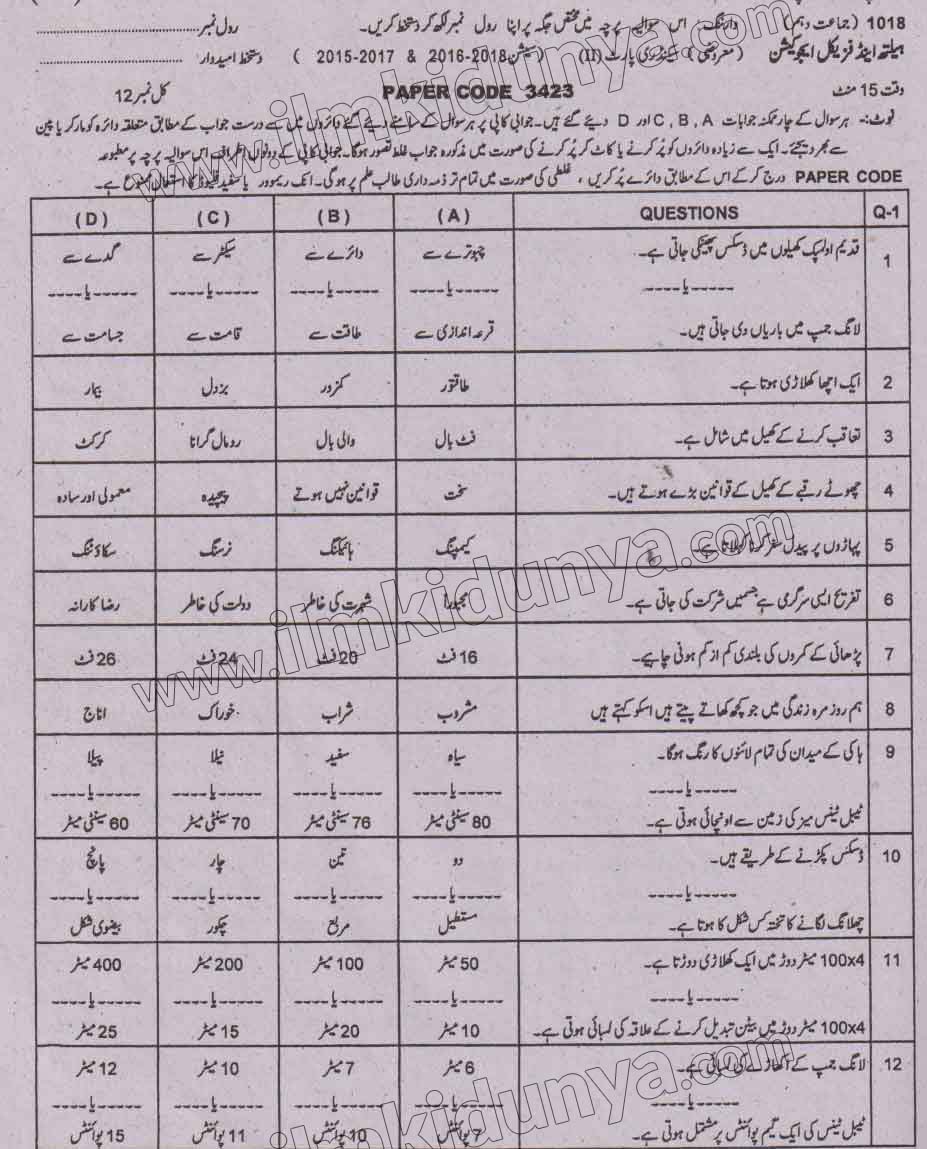 1018 (جماعت دہم) وارننگ:۔ اس سوالیہ پرچہ میں مختص جگہ پر اپنا رول نمبر لکھ کر دستخط کریں۔ رول نمبر
ہیلتھ اینڈ فزیکل ایجوکیشن (معروضی) سیکنڈری پارٹ (II) (سیشن 2016-2018 & 2015-2017) دستخط امیدوار
وقت 15 منٹ PAPER CODE 3423 کل نمبر 12
نوٹ:۔ ہر سوال کے چار ممکنہ جوابات C, B, A اور D دیئے گئے ہیں۔ جوابی کاپی پر ہر سوال کے سامنے دیئے گئے دائروں میں سے درست جواب کے مطابق متعلقہ دائرہ کو مارکر یا پین
سے بھر دیجئے۔ ایک سے زیادہ دائروں کو پُر کرنے یا کاٹ کر پُر کرنے کی صورت میں مذکورہ جواب غلط تصور ہوگا۔ جوابی کاپی کے دونوں اطراف اس سوالیہ پرچہ پر مطبوعہ
PAPER CODE درج کر کے اس کے مطابق دائرے پُر کریں، غلطی کی صورت میں تمام تر ذمہ داری طالب علم پر ہوگی۔ انک ریموور یا سفید فلیوڈ کا استعمال ممنوع ہے۔
Q-1 QUESTIONS (A) (B) (C) (D)
1 قدیم اولمپک کھیلوں میں ڈسکس پھینکی جاتی ہے۔ چبوترے سے دائرے سے سیکٹر سے گدے سے
-----یا---- -----یا---- -----یا---- -----یا---- -----یا----
لانگ جمپ میں باریاں دی جاتی ہیں۔ قرعہ اندازی سے طاقت سے قامت سے جسامت سے
2 ایک اچھا کھلاڑی ہوتا ہے۔ طاقتور کمزور بزدل بیمار
3 تعاقب کرنے کے کھیل میں شامل ہے۔ فٹ بال والی بال رومال گرانا کرکٹ
4 چھوٹے رقبے کے کھیل کے قوانین بڑے ہوتے ہیں۔ سخت قوانین نہیں ہوتے پیچیدہ معمولی اور سادہ
5 پہاڑوں پر پیدل سفر کرنا کہلاتا ہے۔ کیمپنگ ہائیکنگ نرسنگ سکاؤٹنگ
6 تفریح ایسی سرگرمی ہے جسمیں شرکت کی جاتی ہے۔ مجبوراً شہرت کی خاطر دولت کی خاطر رضاکارانہ
7 پڑھائی کے کمروں کی بلندی کم از کم ہونی چاہیے۔ 16 فٹ 20 فٹ 24 فٹ 26 فٹ
8 ہم روزمرہ زندگی میں جو کچھ کھاتے پیتے ہیں اسکو کہتے ہیں مشروب شراب خوراک اناج
9 ہاکی کے میدان کی تمام لائنوں کا رنگ ہوگا۔ سیاہ سفید نیلا پیلا
-----یا---- -----یا---- -----یا---- -----یا---- -----یا----
ٹیبل ٹینس میز کی زمین سے اونچائی ہوتی ہے۔ 80 سینٹی میٹر 76 سینٹی میٹر 70 سینٹی میٹر 60 سینٹی میٹر
10 ڈسکس پکڑنے کے طریقے ہیں۔ دو تین چار پانچ
-----یا---- -----یا---- -----یا---- -----یا---- -----یا----
چھلانگ لگانے کا تختہ کس شکل کا ہوتا ہے۔ مستطیل مربع چکور بیضوی شکل
11 100x4 میٹر دوڑ میں ایک کھلاڑی دوڑتا ہے۔ 50 میٹر 100 میٹر 200 میٹر 400 میٹر
-----یا---- -----یا---- -----یا---- -----یا---- -----یا----
100x4 میٹر دوڑ میں بیٹن تبدیل کرنے کے علاقہ کی لمبائی ہوتی ہے۔ 10 میٹر 20 میٹر 15 میٹر 25 میٹر
12 لانگ جمپ کے اکھاڑے کی لمبائی ہے۔ 6 میٹر 7 میٹر 10 میٹر 12 میٹر
-----یا---- -----یا---- -----یا---- -----یا---- -----یا----
ٹیبل ٹینس کی ایک گیم پوائنٹس پر مشتمل ہوتی ہے۔ 7 پوائنٹس 10 پوائنٹس 11 پوائنٹس 15 پوائنٹس
www.ilmkidunya.com
www.ilmkidunya.com
ilmkidunya.com